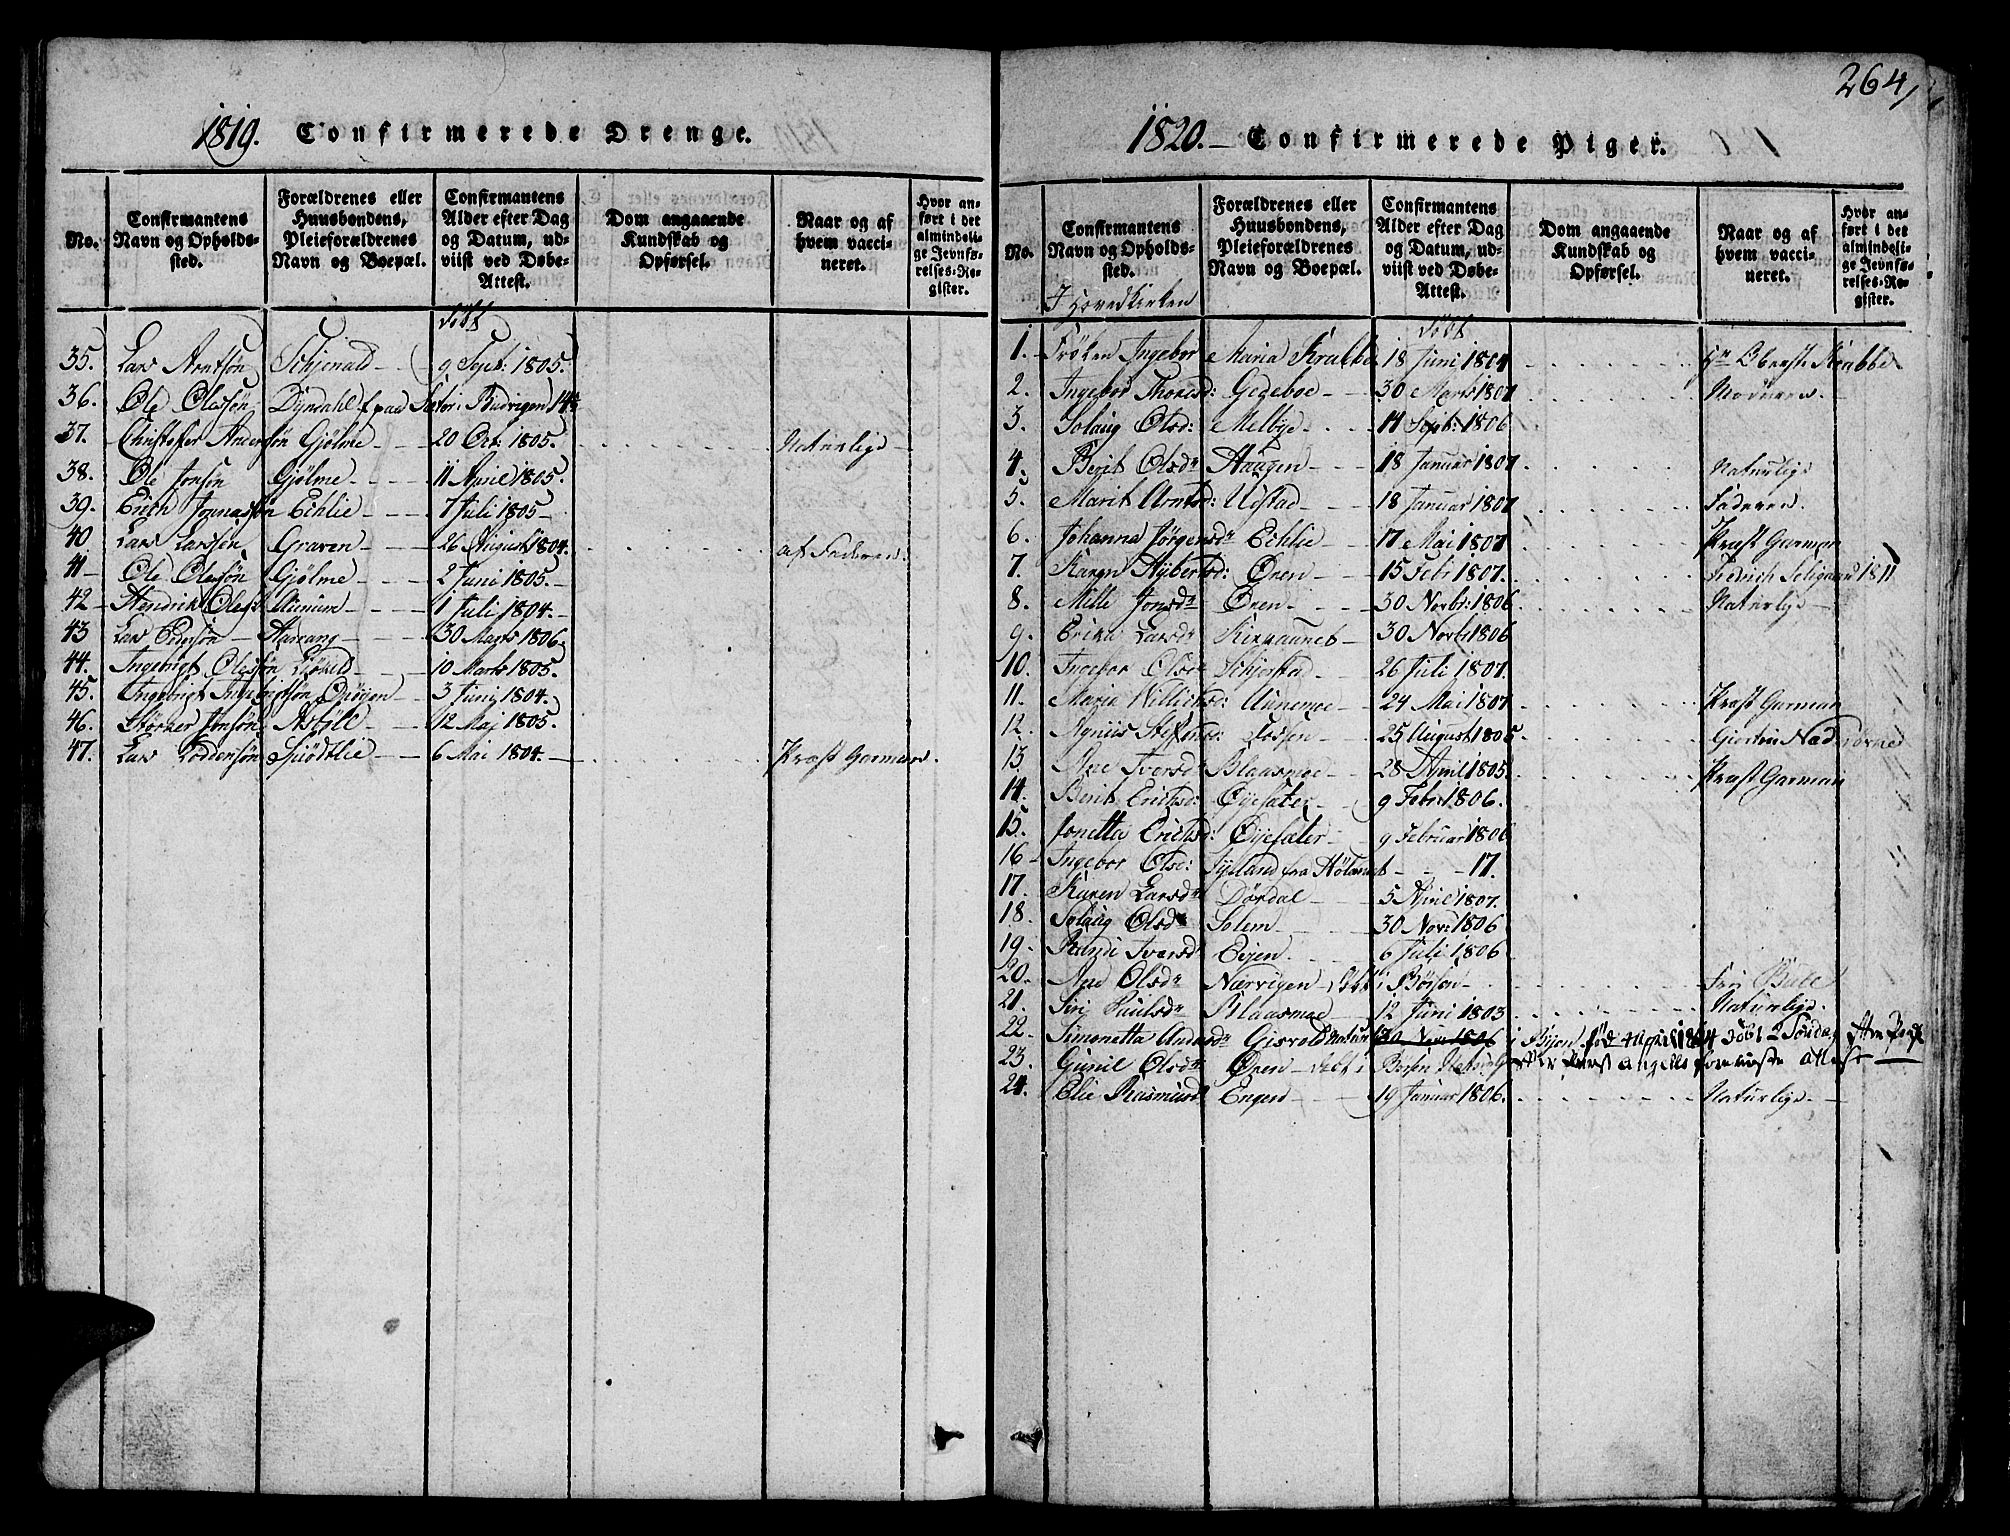 1819. Confirmerede Drenge.
No.
Confirmantens Navn og Opholdssted.
Forældrenes eller Huusbondens, Pleieforældrenes Navn og Boepæl.
Confirmantens Alder efter Dag og Datum, udviist ved Døbe-Attest.
Dom angaaende Kundskab og Opførsel.
Naar og af hvem vaccineret.
Hvor anført i det almindelige Jevnførelses-Register.
Døbt
35. Lars Arntsøn Schjenald 9 Sept: 1805.
36. Ole Olessøn Dyndahl
37. Christofer Andersøn Gjølme 20 Oct: 1805. Naturlige
38. Ole Jonsøn Gjølme 11 April 1805.
39. Erich Jonnassøn Echlie 7 Juli 1805
40 Lars Larssøn Graven 26 August 1804. af Faderen.
41 Ole Olessøn Gjølme 2 Juni 1805.
42 Hendrik Olss: 1 Juli 1804.
43 Lars Aamang 30 Marts 1806
44. Ingebrigt Olessøn 10 Marts 1805.
45. Ingebrigt 3 Junj 1804.
46. Størker Jonsøn Astølt 12 Maj 1805.
47. Lars Loddensøn 6 Mai 1804. Præst Garman.
264
1820. Confirmerede Piger.
No.
Confirmantens Navn og Opholdssted.
Forældrenes eller Huusbondens, Pleieforældrenes Navn og Boepæl.
Confirmantens Alder efter Dag og Datum, udviist ved Døbe-Attest.
Dom angaaende Kundskab og Opførsel.
Naar og af hvem vaccineret.
Hvor anført i det almindelige Jevnførelses-Register.
I Hovedkirken
Døbt
1. Frøken Ingebor Maria Krabbe 18 Juni 1804 Hr Oberst Krabbe
2. Ingebor Thoresd: Gedeboe 30 Marts 1807 Moderen.
3. Solaug Olsd: Melbye 14 Sept: 1806
4. Berit Olsdr Haugen 18 Januar 1807 Naturlige
5. Marit Arntsd: Ustad 18 Januar 1807 Faderen.
6. Johanna Jørgensdr Echlie 17 Mai 1807 Præst Garman
7. Karen Øren 15 Febr 1807. Fridrich Seligaau 1811
8. Mille Jonsdr Øren 30 Novbr: 1806 Naturlige
9. Erika Larsdr 30 Novbr 1806
10. Ingebor Olsdr Schjerstad 26 Juli 1807.
11. Maria Unnemoe 24 Mai 1807 Præst Garman
12. Agniis 25 August 1805
13 Ane Iversdr Blaasmoe 28 April 1805 Præst Garman
14. Berit Erichsd: Øyesæter 9 Febr 1806.
15. Jonetta Erichsd: Øyesæter 9 Februar 1806
16 Ingebor Olsd: Jylland fra Hølandet 17.
17. Karen Larsdr Dørdal 5 April 1807.
18. Solaug Olsdr Solem 30 Novr: 1806
19. Randi Iversd Eijen 6 Juli 1806
20. Ane Olsdr Nærvigen Døbt i Børsen Siri
21. Siri Paulsdr Blaasmoe 12 Juni 1803 Naturlige.
22. Simonetta Andersdr 30 Novr 1806 i Bijen født 4 April 1804
23. Guruil Olsdr Øren Døbt i Børsen Præst Angells foreviste Attest
24. Elie Rasmusdr Engen 19 Januar 1806. Naturlige.